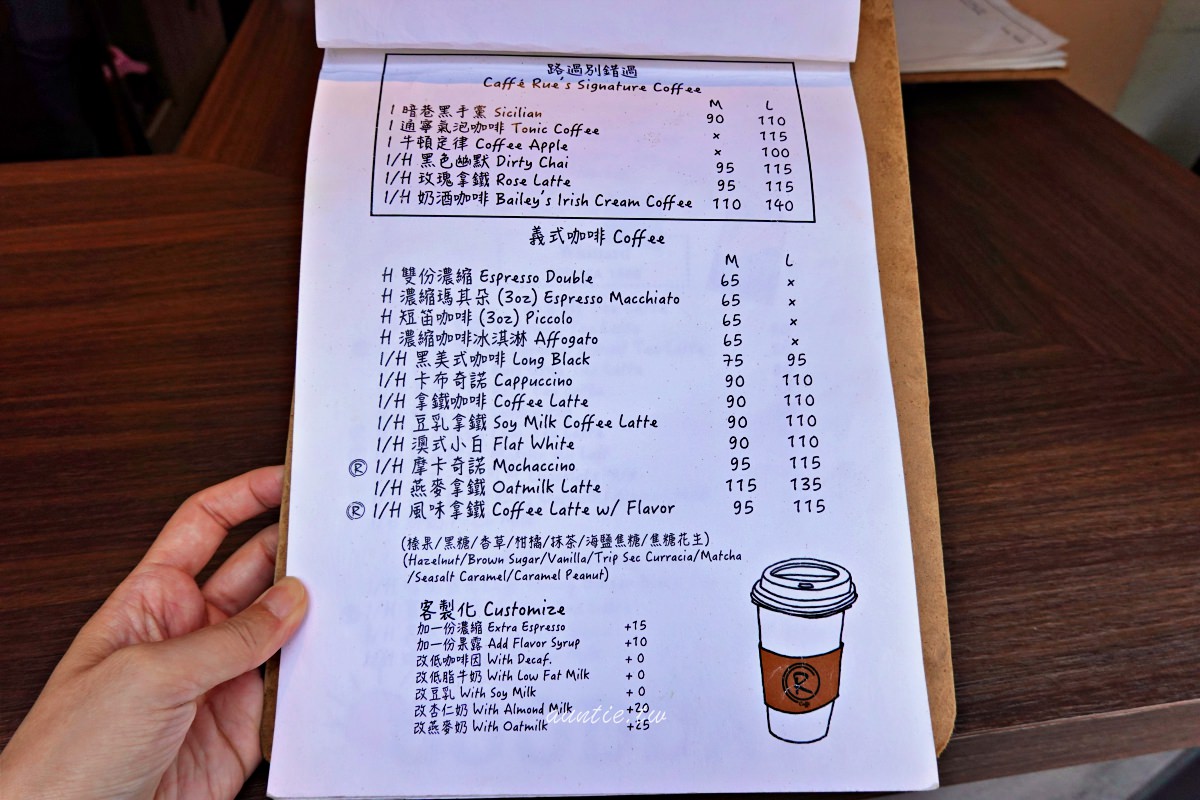 路過別錯過
Caffé Rue's Signature Coffee
M L
I 暗巷黑手黨 Sicilian 90 110
I 通寧氣泡咖啡 Tonic Coffee x 115
I 牛頓定律 Coffee Apple x 100
I/H 黑色幽默 Dirty Chai 95 115
I/H 玫瑰拿鐵 Rose Latte 95 115
I/H 奶酒咖啡 Bailey's Irish Cream Coffee 110 140
義式咖啡 Coffee
M L
H 雙份濃縮 Espresso Double 65 x
H 濃縮瑪其朵 (3oz) Espresso Macchiato 65 x
H 短笛咖啡 (3oz) Piccolo 65 x
H 濃縮咖啡冰淇淋 Affogato 65 x
I/H 黑美式咖啡 Long Black 75 95
I/H 卡布奇諾 Cappuccino 90 110
I/H 拿鐵咖啡 Coffee Latte 90 110
I/H 豆乳拿鐵 Soy Milk Coffee Latte 90 110
I/H 澳式小白 Flat White 90 110
Ⓡ I/H 摩卡奇諾 Mochaccino 95 115
I/H 燕麥拿鐵 Oatmilk Latte 115 135
Ⓡ I/H 風味拿鐵 Coffee Latte w/ Flavor 95 115
(榛果/黑糖/香草/柑橘/抹茶/海鹽焦糖/焦糖花生)
(Hazelnut/Brown Sugar/Vanilla/Trip Sec Curracia/Matcha
/Seasalt Caramel/Caramel Peanut)
客製化 Customize
加一份濃縮 Extra Espresso +15
加一份果露 Add Flavor Syrup +10
改低咖啡因 With Decaf. + 0
改低脂牛奶 With Low Fat Milk + 0
改豆乳 With Soy Milk + 0
改杏仁奶 With Almond Milk +20
改燕麥奶 With Oatmilk +25
auntie.tw
R